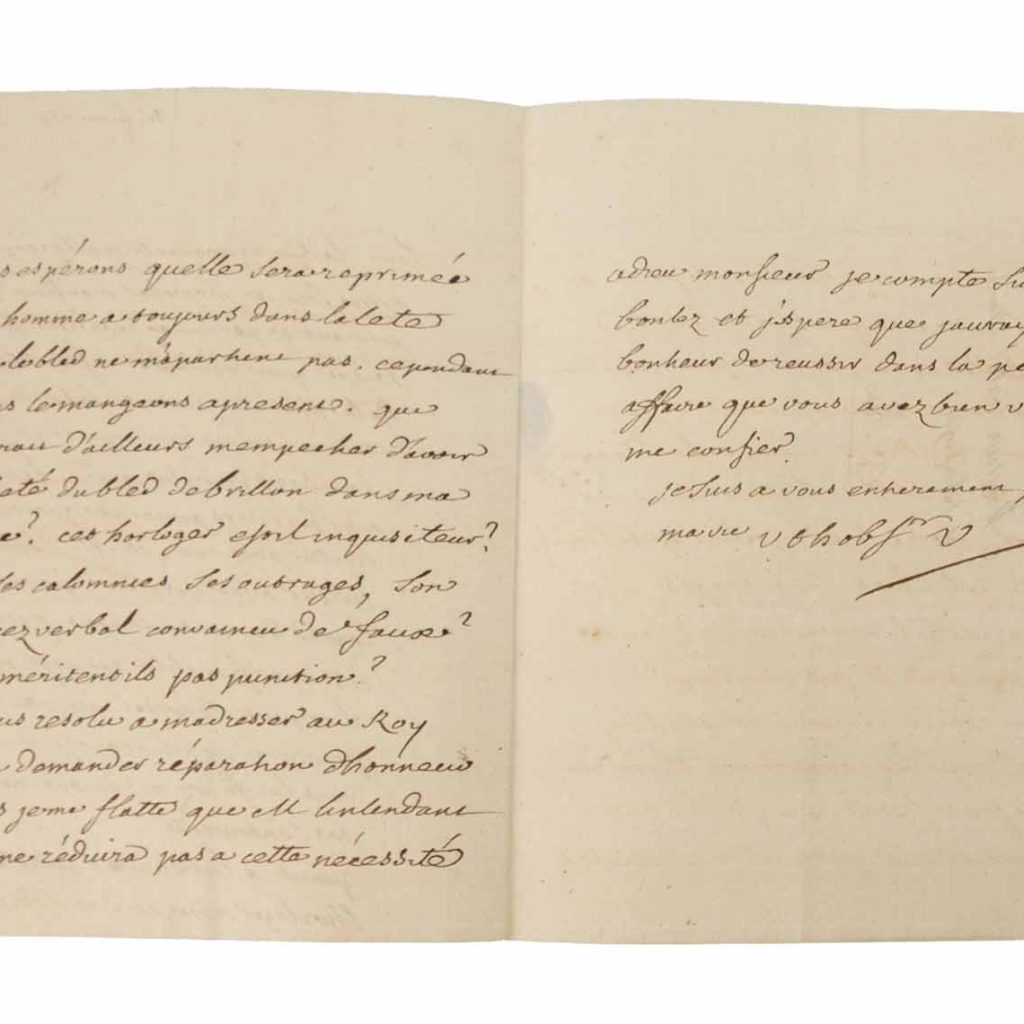 espérons quelle sera reprimée
homme a toujours dans la tete
bled ne m'apartient pas. cependant
le mangeons apresent. que
d'ailleurs mempecher d'avoir
du bled de brillon dans ma
cet horloger est il inquisiteur?
ses calomnies ses outrages, son
verbal convaincu de faux?
méritent ils pas punition?
resolu a madresser au Roy
demander réparation dhonneur
je me flatte que M lintendant
me réduira pas a cette nécessité
adieu monsieur je compte su
bontez et j'espere que jauray
bonheur de reussir dans la pe
affaire que vous avez bien v
me confier.
je suis a vous entierement
ma vie v t h ob sr V